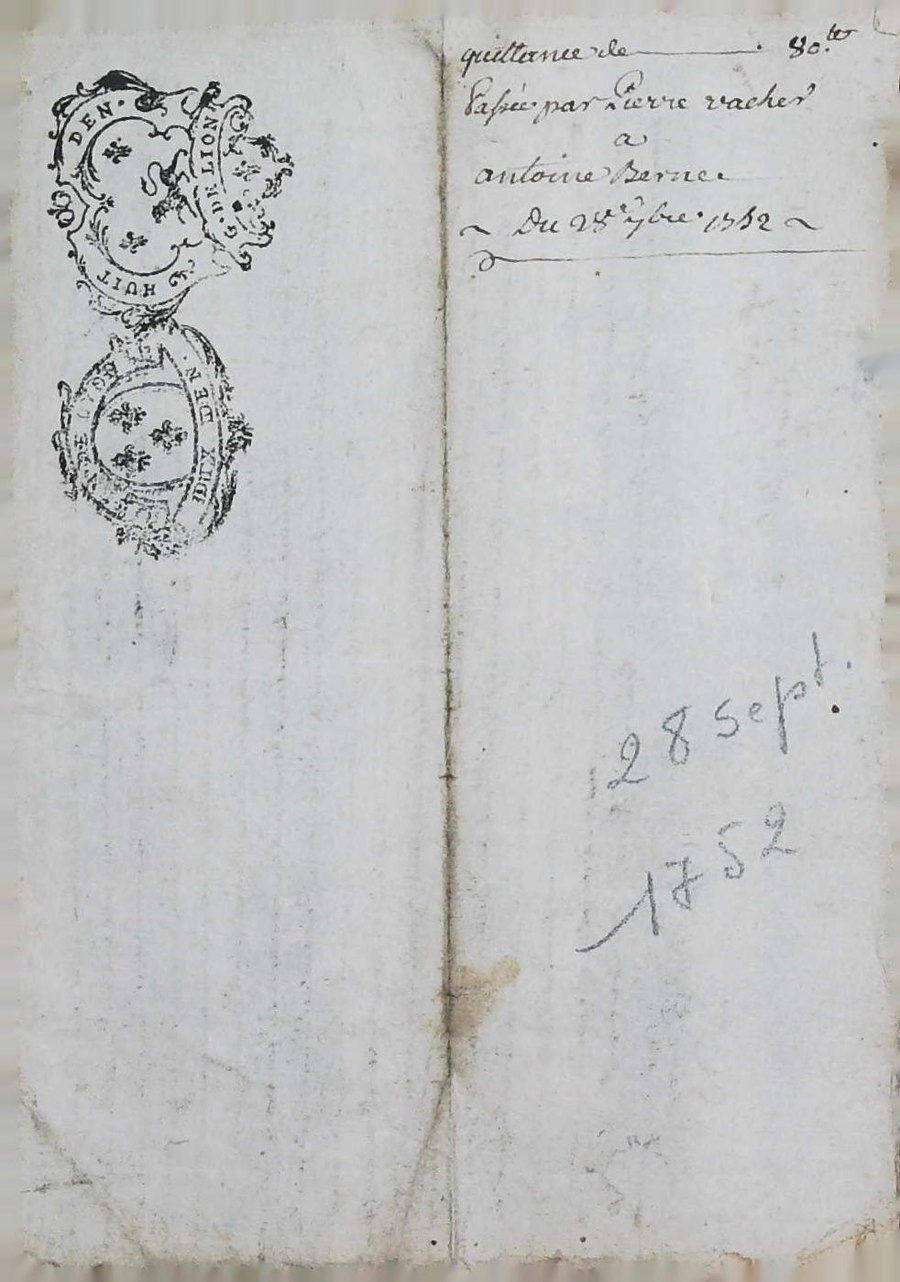 HUIT DEN.
G. DE LION
DE LYON
DEUX DEN.
quittance de 80.ₜₜ
Passée par Pierre vacher
a
antoine Berne
~ Du 28e 7bre. 1752 ~
28 Sept.
1752